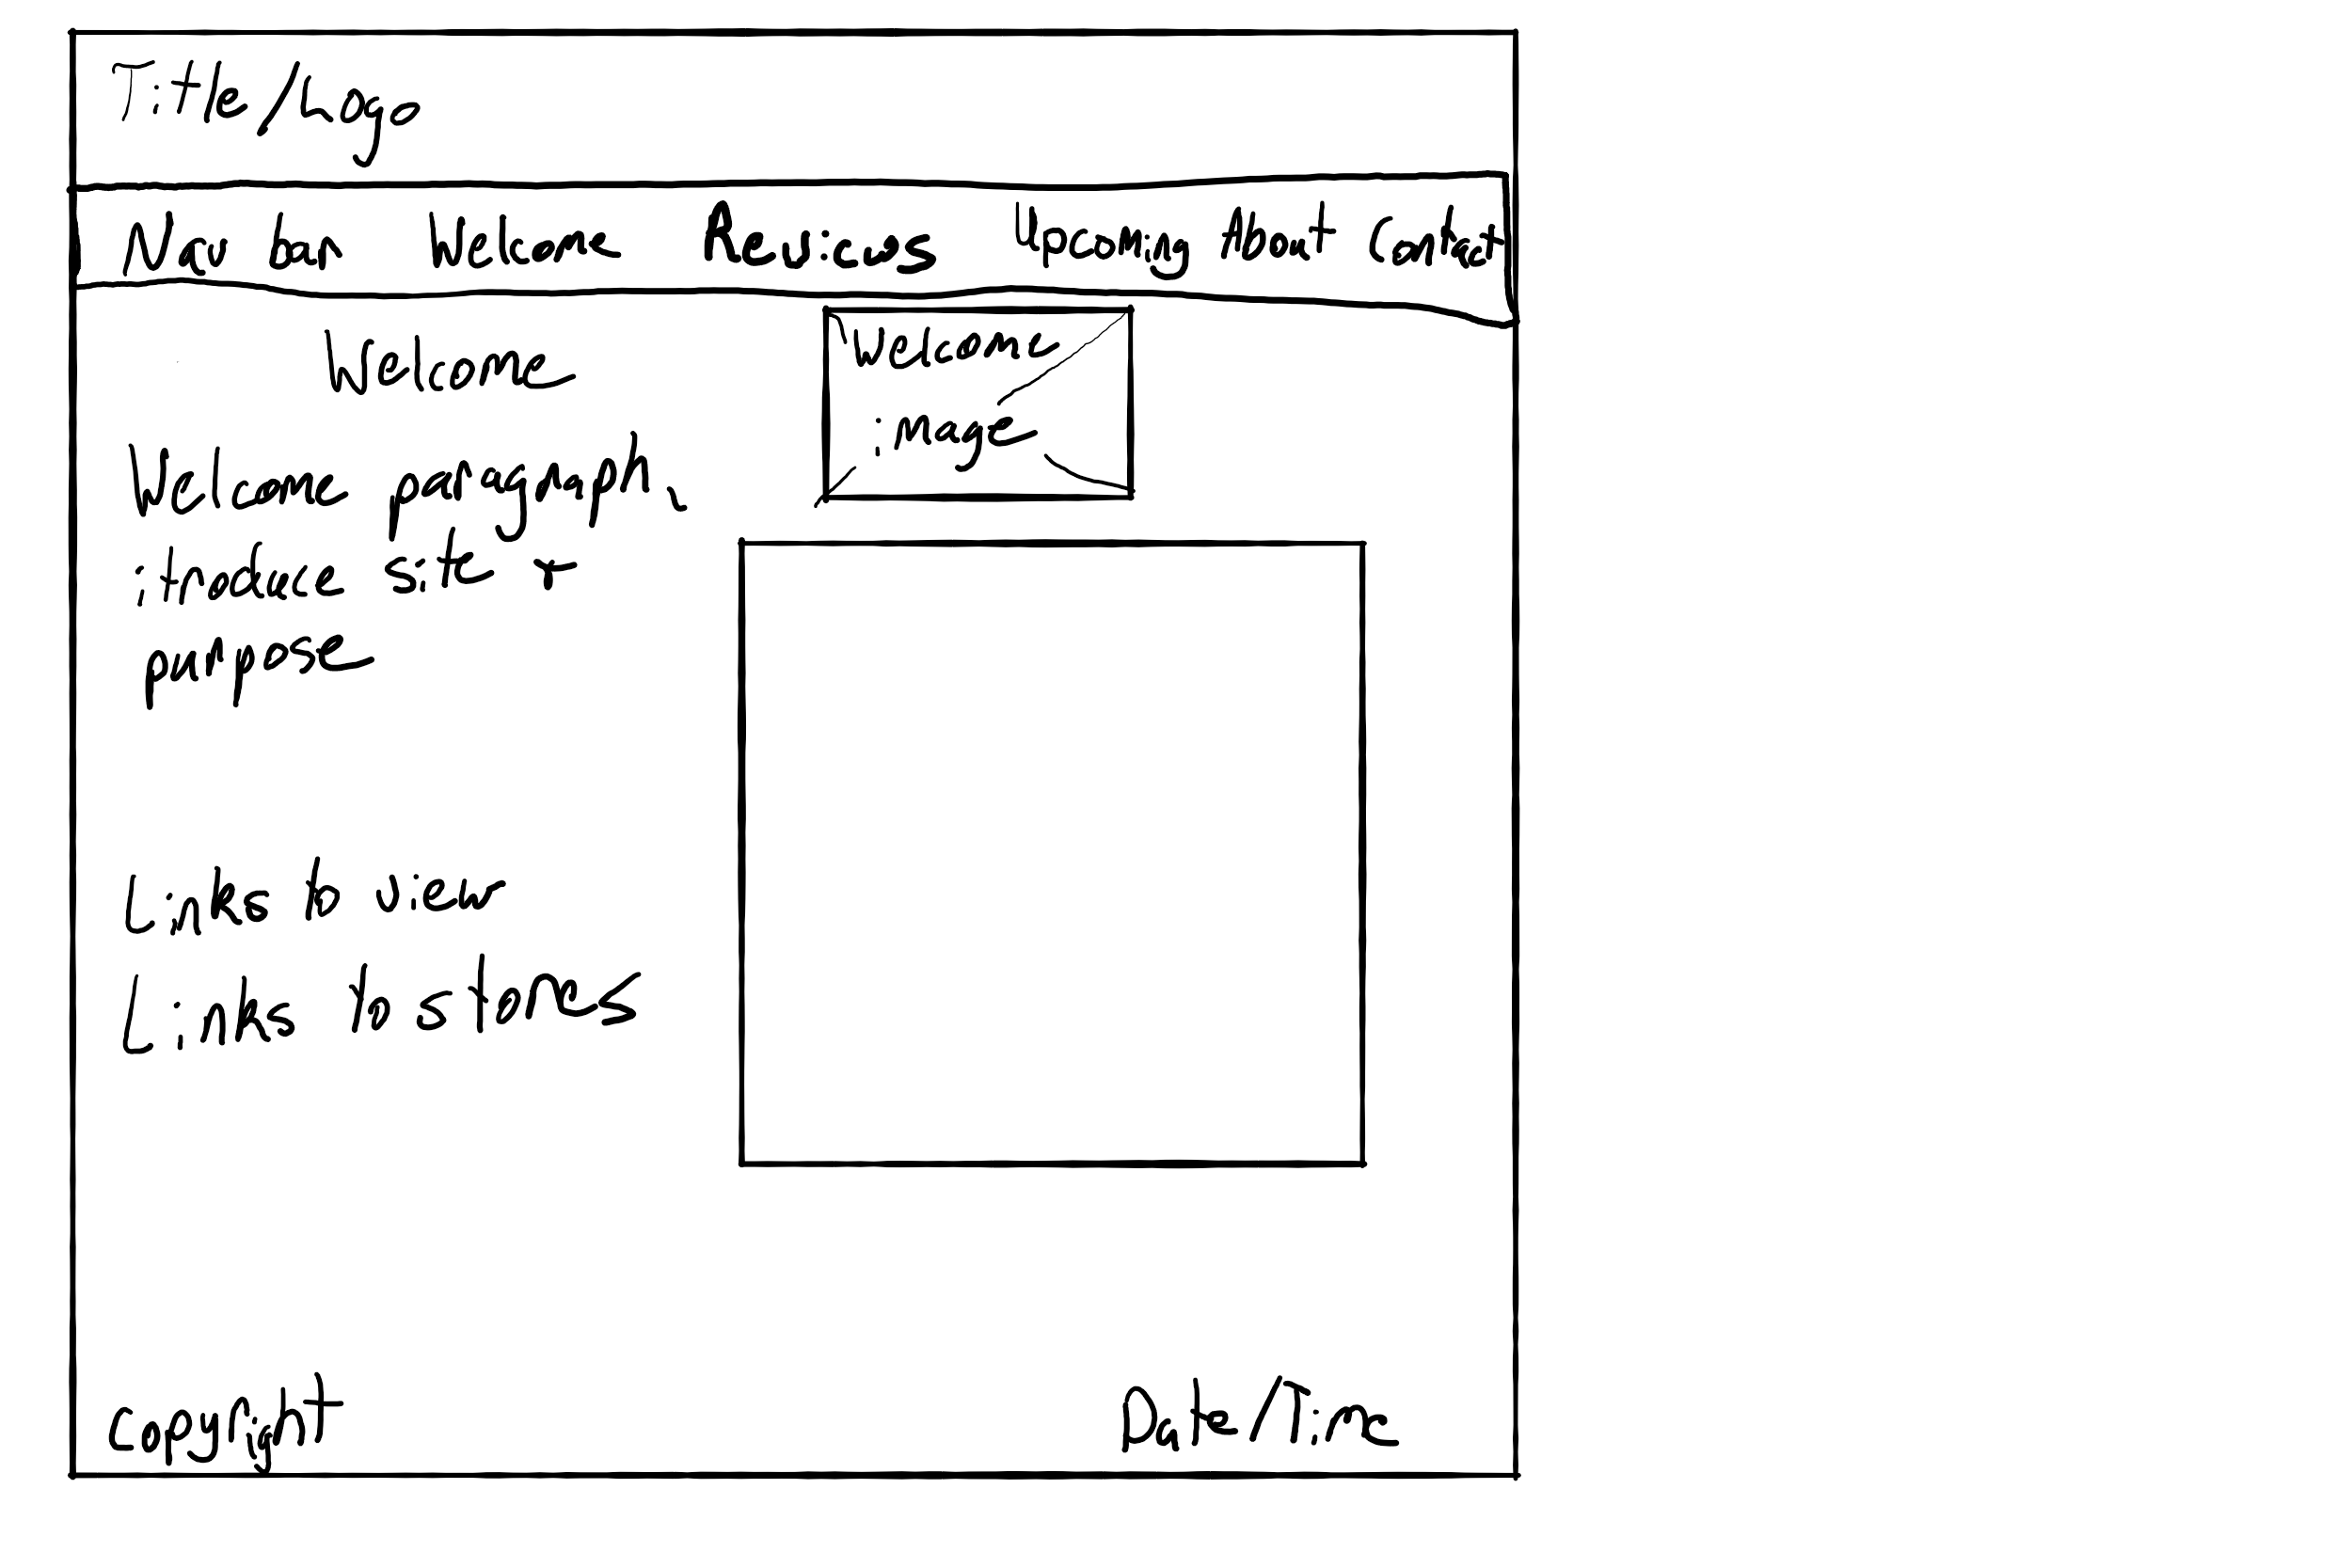 Title/Logo
Nav bar Welcome Reviews Upcoming About Contact
Welcome
Welcome
image
Welcome paragraph.
itroduce site +
purpose
Links to view
Links to stores
Copyright
Date/Time